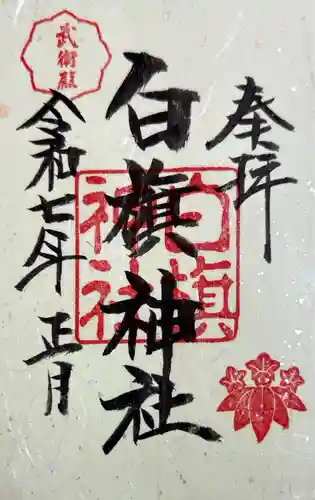 奉拝
白旗神社
令和七年
正月
武衛殿
白旗
神社